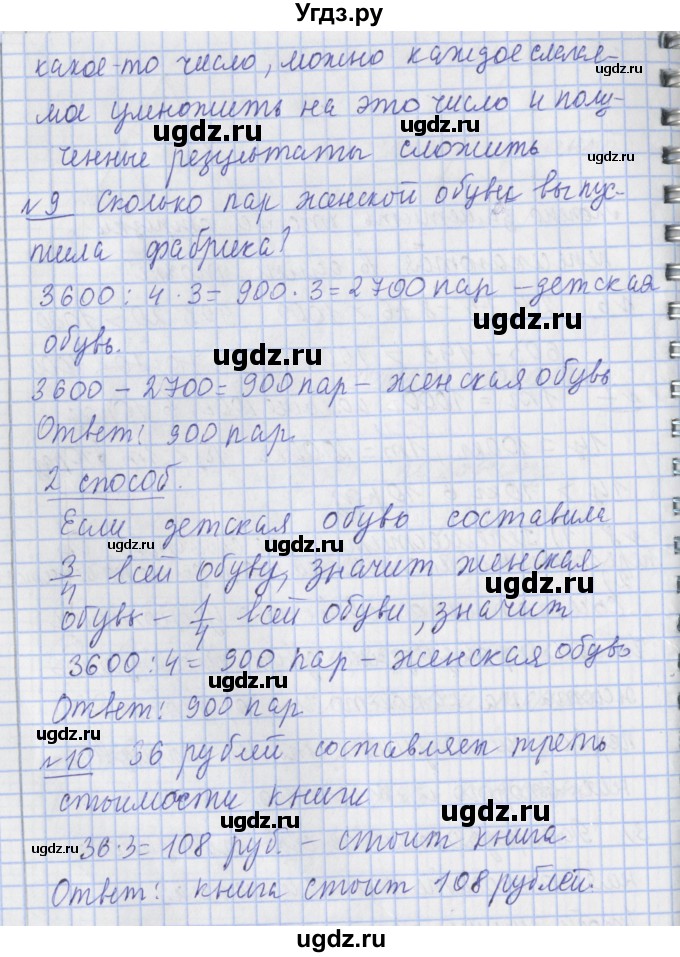 Угдз.ру
какое-то число, можно каждое слагае-
мое умножить на это число и полу-
ugdz.ru ugdz.ru
ченные результаты сложить
ugdz.ru ugdz.ru
№9 Сколько пар женской обуви выпус-
тила фабрика?
3600 : 4 · 3 = 900 · 3 = 2700 пар - детская
ugdz.ru
обувь.
ugdz.ru
3600 - 2700 = 900 пар - женская обувь
Ответ: 900 пар.
2 способ.
Если детская обувь составила
ugdz.ru ugdz.ru
3/4 всей обуви, значит женская
ugdz.ru
обувь - 1/4 всей обуви, значит
3600 : 4 = 900 пар - женская обувь
ugdz.ru
Ответ: 900 пар
ugdz.ru
№10 36 рублей составляет треть
стоимости книги
ugdz.ru ugdz.ru
36 · 3 = 108 руб. - стоит книга
ugdz.ru
Ответ: книга стоит 108 рублей.
ugdz.ru
ugdz.ru